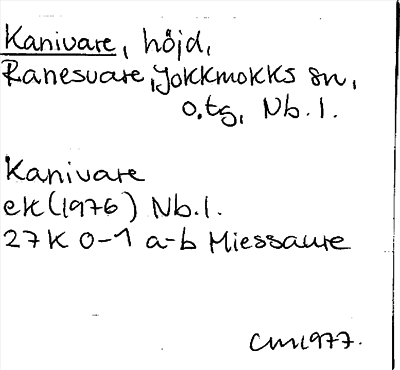 Kanivare, höjd,
Ranesvare, Jokkmokks sn,
o.tg, Nb.l.
Kanivare
ek(1976) Nb.l.
27K 0-1 a-b Miessaure
CM1977.